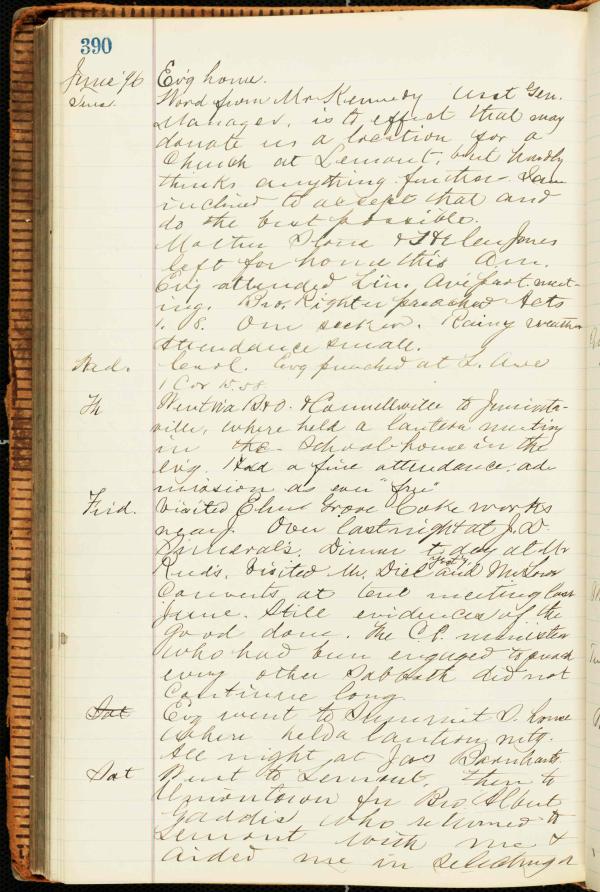 390
June '96 Ev'g home.
Tues. Word from Mr Kennedy Asst Gen.
Manager, is to effect that may
donate us a location for a
Church at Lemont, but hardly
thinks anything further. I am
inclined to accept that and
do the best possible.
Mother & Helen Jones
left for home this Am.
Ev'g attended Lin. Ave past. meet-
ing. Bro. Righter preached Acts
1. 8. One seeker. Rainy weather
Attendance small.
Wed. Cool. Ev'g preached at L. Ave
1 Cor 15.58
Th Went via B&O. & Connellville to
ville, where held a lantern meeting
in the school-house in the
ev'g. Had a fine attendance; ad-
mission as ever "free"
Frid. Visited Elm Grove Coke works
near. Over last night at J. D.
Dinner to day at Mr
yest'y
Visited Mr. and
Converts at tent meeting last
June. Still evidences of the
good done. The C. P. minister
who had been engaged to preach
every other Sabbath did not
continue long.
Sat Ev'g went to Summit S. house
where held a lantern mtg.
All night at Jas Barnhart's.
Sat Went to Lemont, then to
Uniontown for Bro. Albert
Gaddis who returned to
Lemont with me &
aided me in selecting a